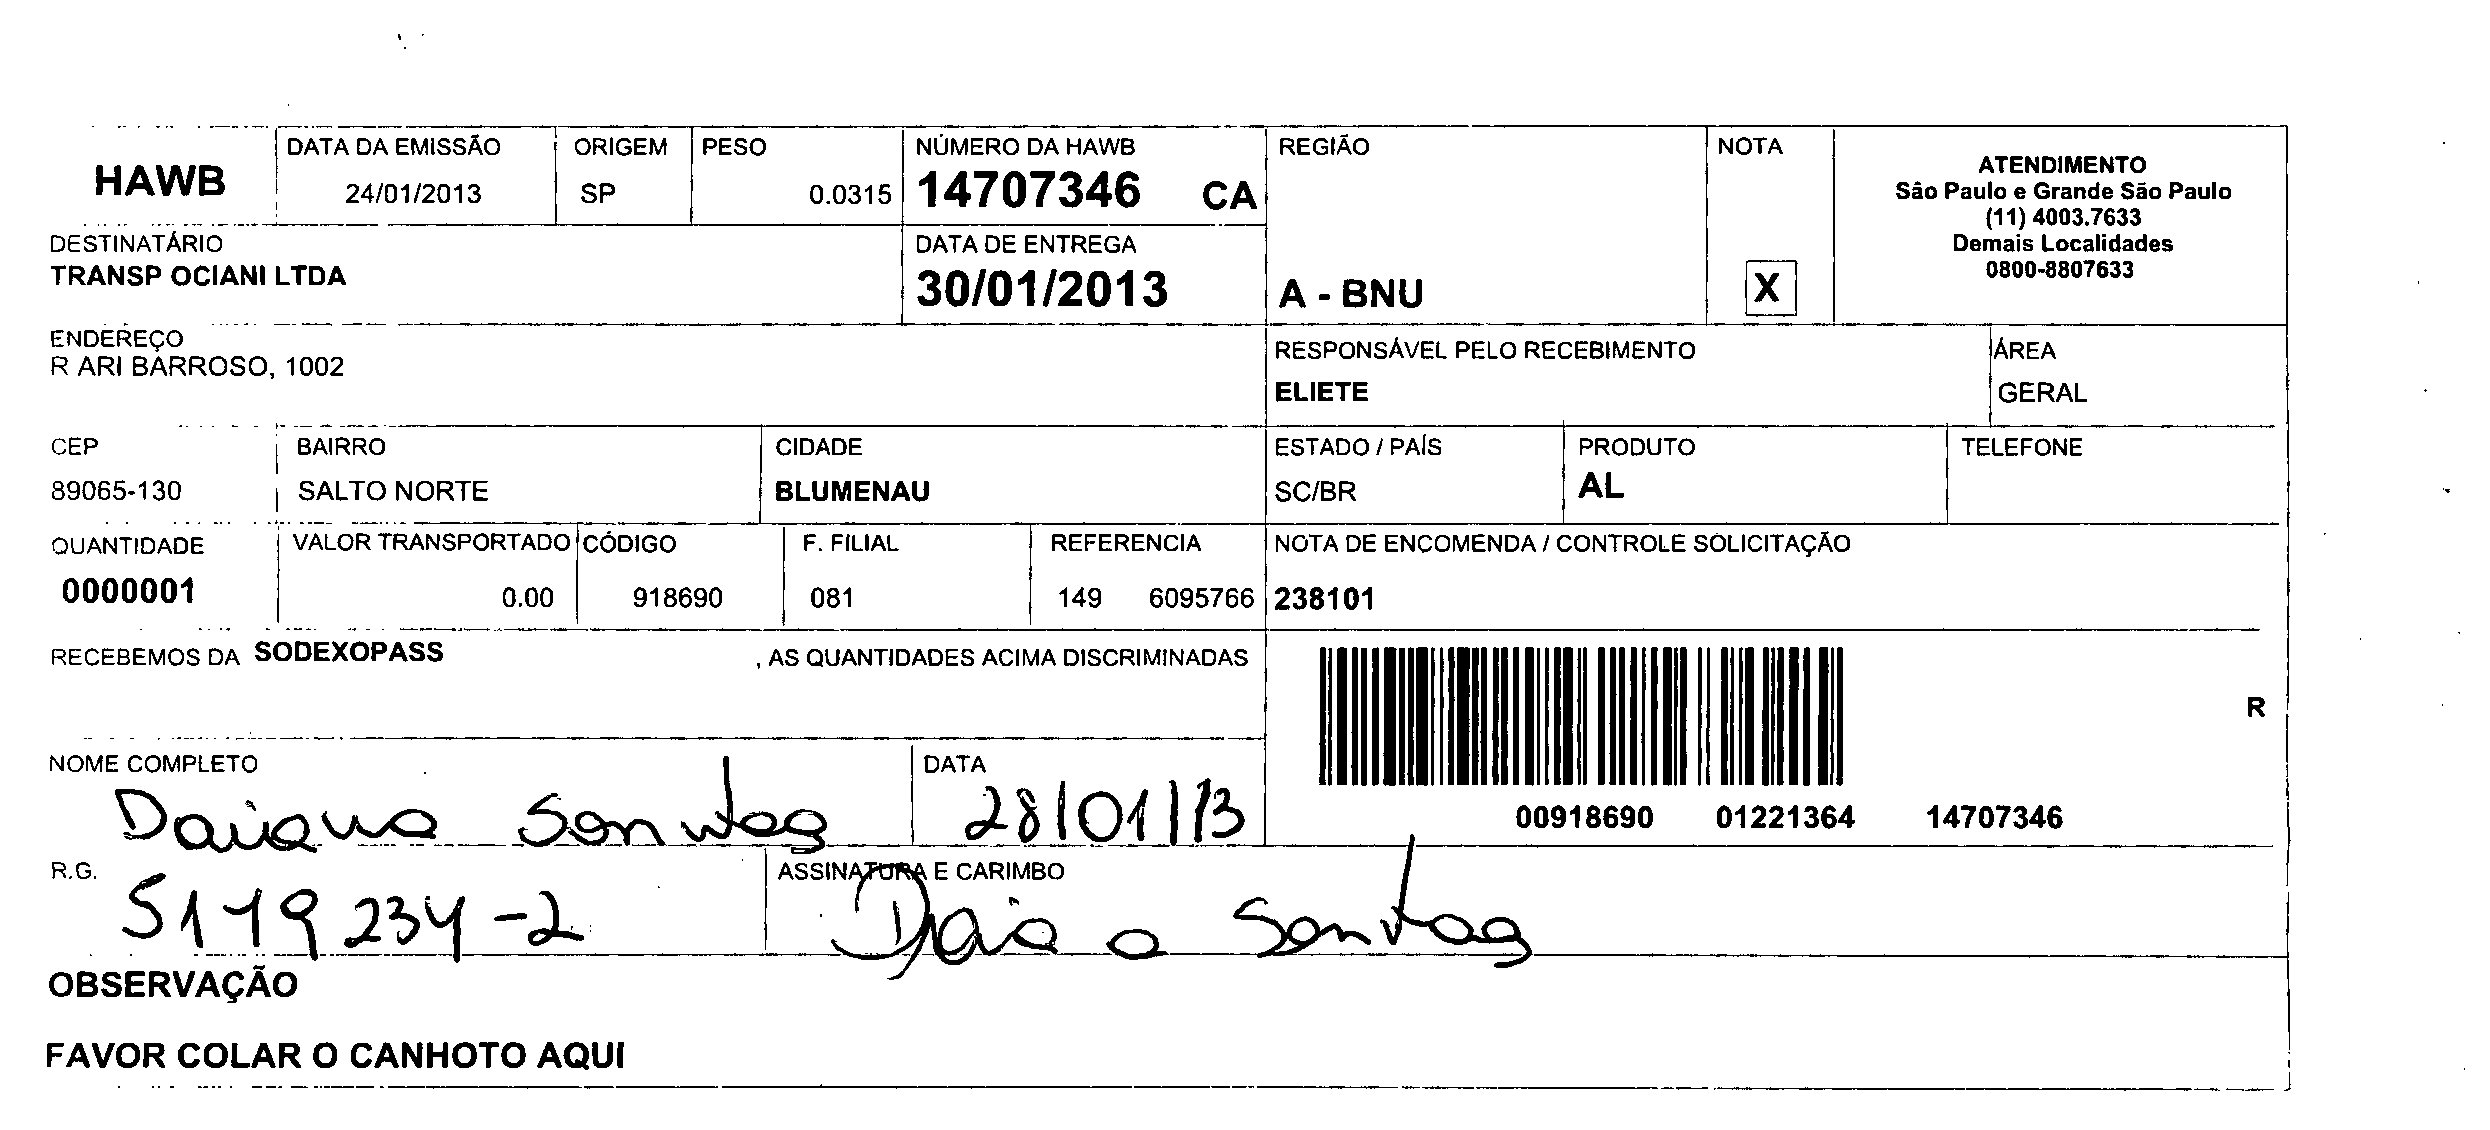 HAWB
DATA DA EMISSÃO
24/01/2013
ORIGEM
SP
PESO
0.0315
NÚMERO DA HAWB
14707346 CA
REGIÃO
A - BNU
NOTA
X
ATENDIMENTO
São Paulo e Grande São Paulo
(11) 4003.7633
Demais Localidades
0800-8807633
DESTINATÁRIO
TRANSP OCIANI LTDA
DATA DE ENTREGA
30/01/2013
ENDEREÇO
R ARI BARROSO, 1002
RESPONSÁVEL PELO RECEBIMENTO
ELIETE
ÁREA
GERAL
CEP
89065-130
BAIRRO
SALTO NORTE
CIDADE
BLUMENAU
ESTADO / PAÍS
SC/BR
PRODUTO
AL
TELEFONE
QUANTIDADE
0000001
VALOR TRANSPORTADO
0.00
CÓDIGO
918690
F. FILIAL
081
REFERENCIA
149 6095766
NOTA DE ENCOMENDA / CONTROLE SOLICITAÇÃO
238101
RECEBEMOS DA SODEXOPASS , AS QUANTIDADES ACIMA DISCRIMINADAS
R
00918690 01221364 14707346
NOME COMPLETO
Daiana Sontag
DATA
28/01/13
R.G.
5119234-2
ASSINATURA E CARIMBO
Sontag
OBSERVAÇÃO
FAVOR COLAR O CANHOTO AQUI